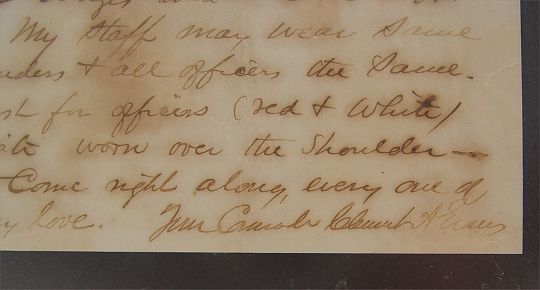 My Staff may wear Same
& all officers the Same.
for officers (red & White)
worn over the Shoulder—
Come right along, every one of
love. Your Comrade Clement A Evans